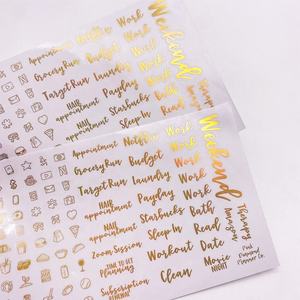 Appointment Netflix Work
Grocery Run Budget Work
Target Run Laundry Work
HAIR appointment Payday Work
NAIL appointment Starbucks Bath
Sleep In Read
Weekend
Appointment Netflix Work
Grocery Run Budget Work
Target Run Laundry Work
HAIR appointment Payday Work
NAIL appointment Starbucks Bath
Zoom Session Sleep In Read
TIME TO GET Planning Workout Date
Subscription RENEWAL Clean Movie NIGHT
Weekend
Amazon Therapy
Pink
Planner Co.